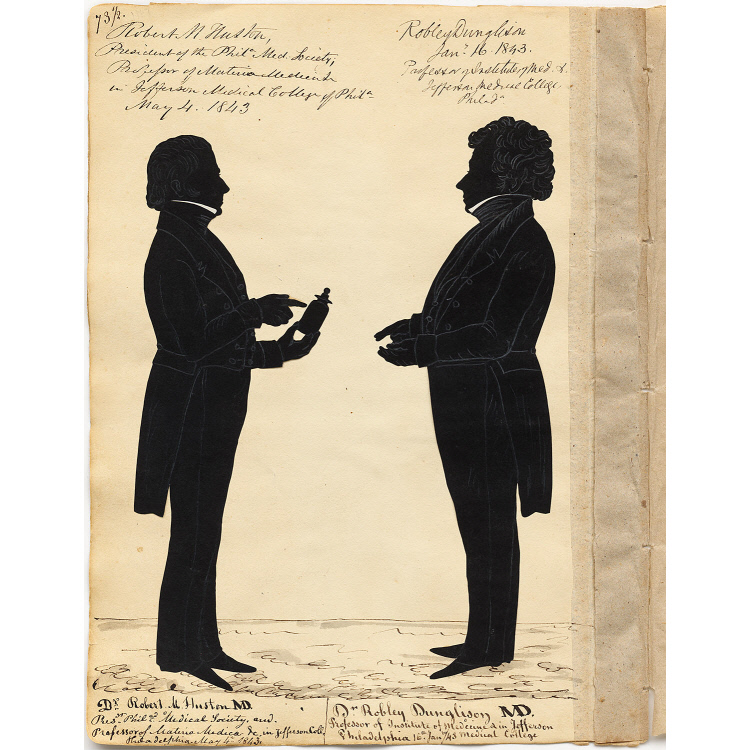 73½.
Robert M Huston,
President of the Phila Med. Society,
Professor of Materia Medica &c
in Jefferson Medical College of Phila
May 4. 1843
Robley Dunglison
Jany 16. 1843.
Professor of Institute of Med. &
Jefferson Medical College.
Philada
Dr Robert M Huston MD.
Medical Society, and
Professor of Materia Medica &c, in Jefferson
Philadelphia May 4th 1843.
Dr Robley Dunglison MD.
Professor of Institute of Medicine in Jefferson
Philadelphia Jany Medical College